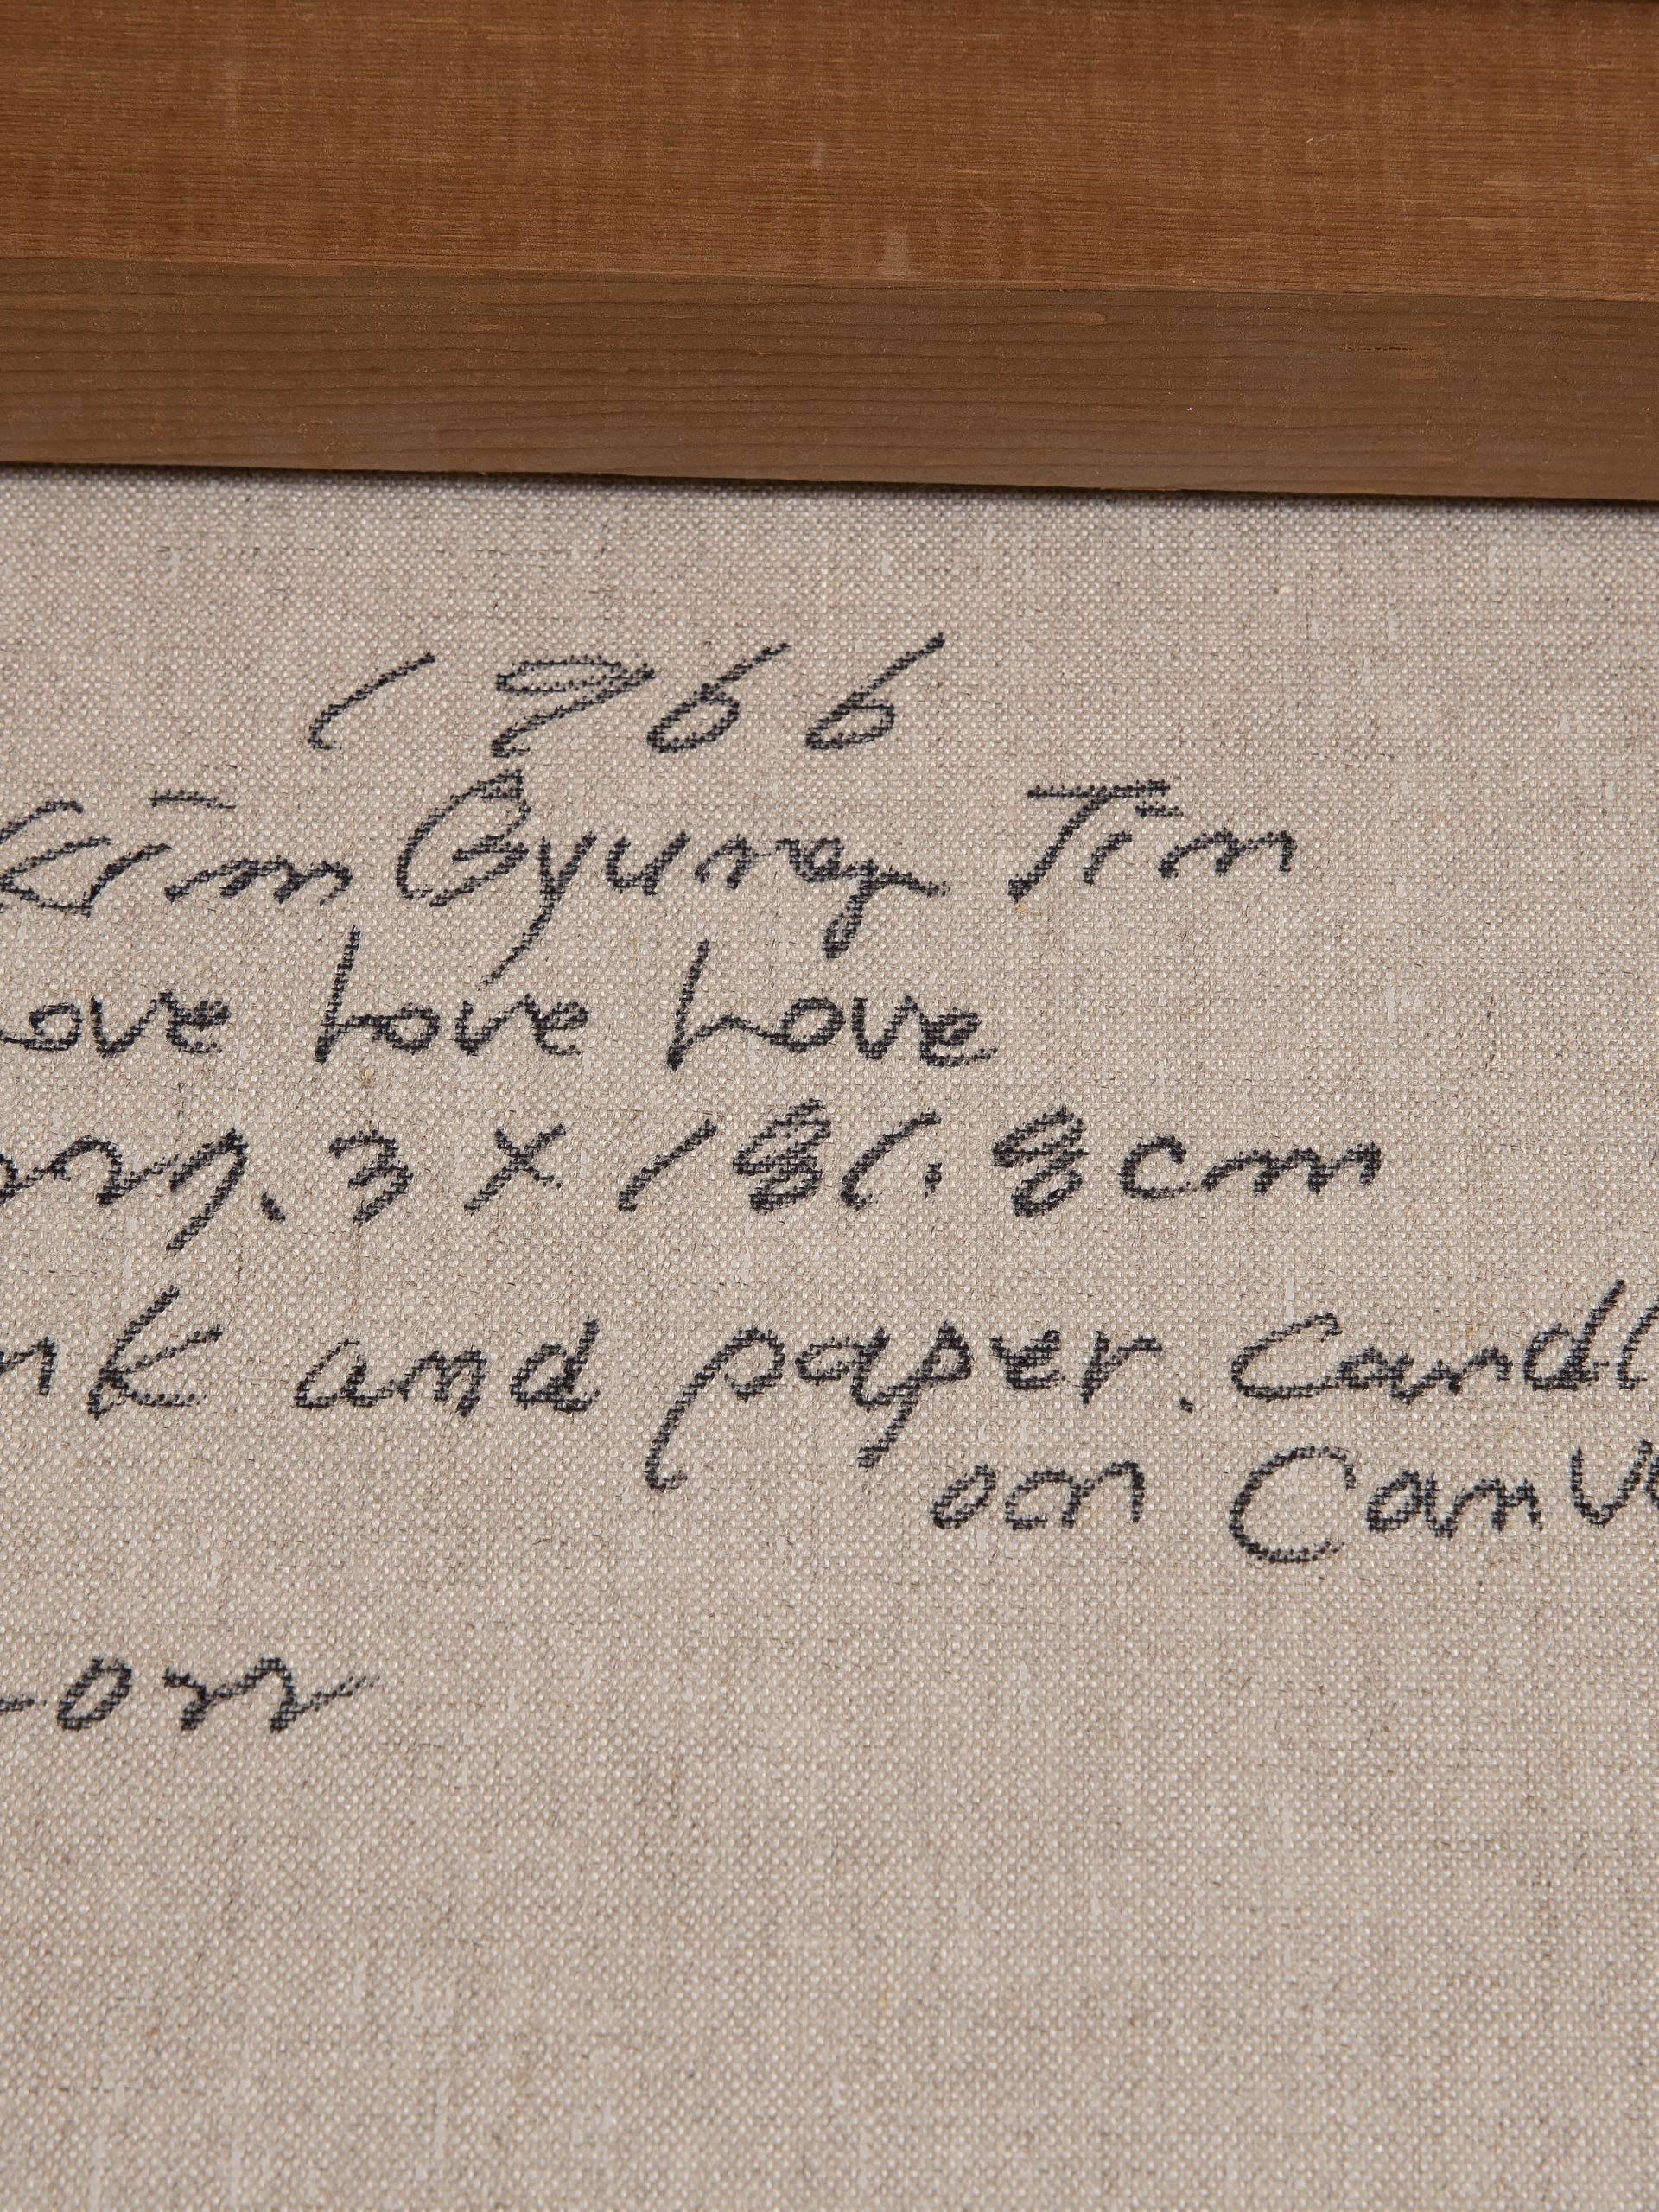 1966
Kim Gyung Tin
Love Love Love
3 x 181.8cm
and paper. Candl
on Canv
on